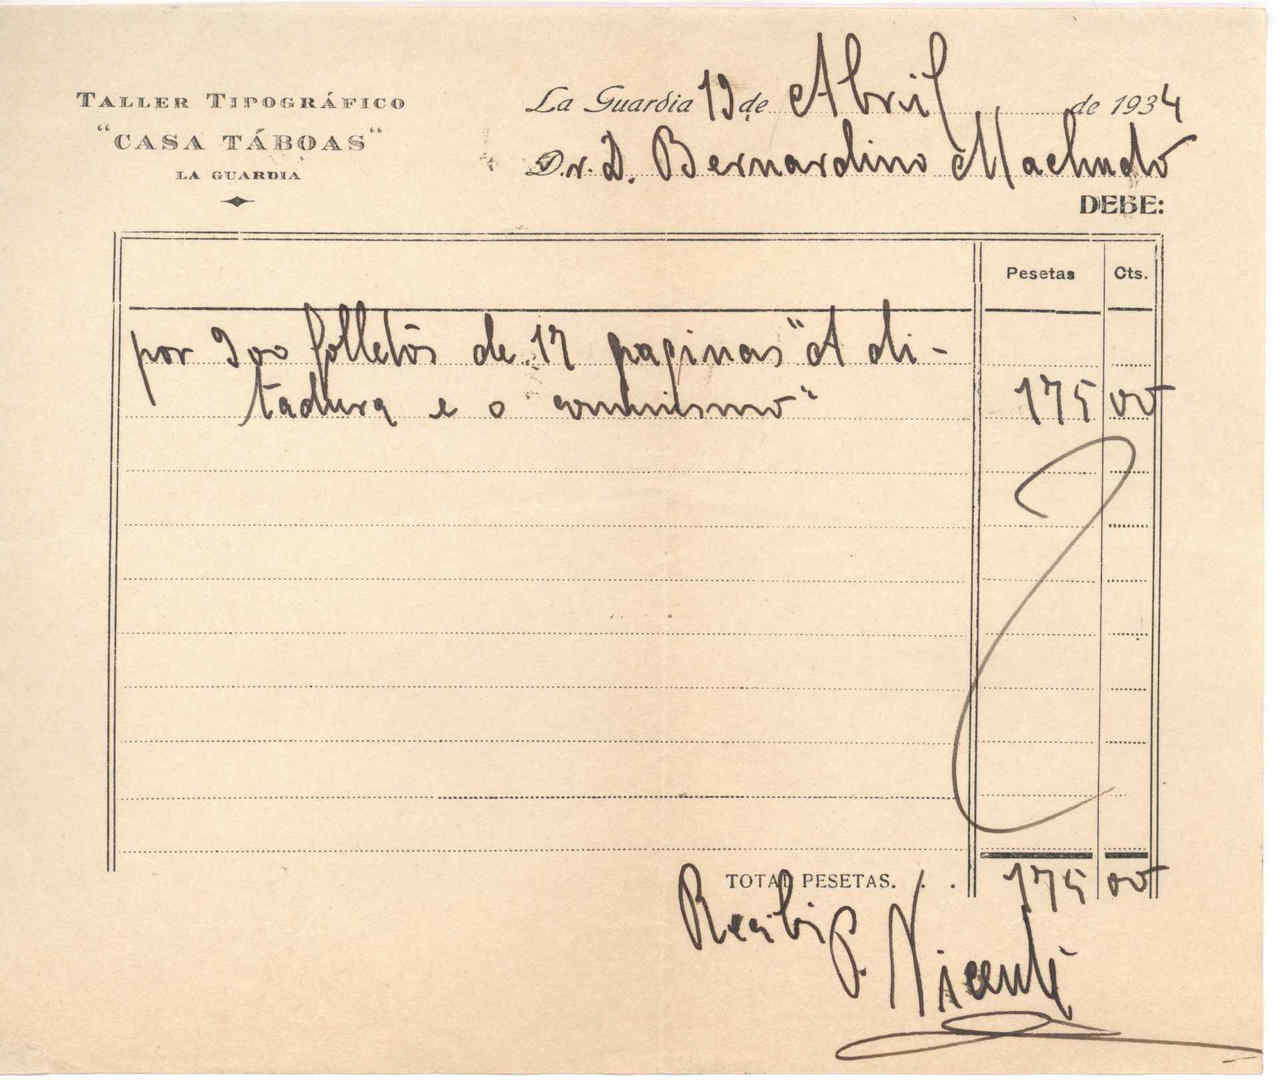 TALLER TIPOGRÁFICO
"CASA TÁBOAS"
LA GUARDIA
La Guardia 19 de Abril de 1934
D.r. D. Bernardino Machado
DEBE:
Pesetas Cts.
por 900 folletos de 12 paginas "A di-
tadura e o comunismo" 175 00
TOTAL PESETAS. . . 175 00
Recibi
P. Vicente